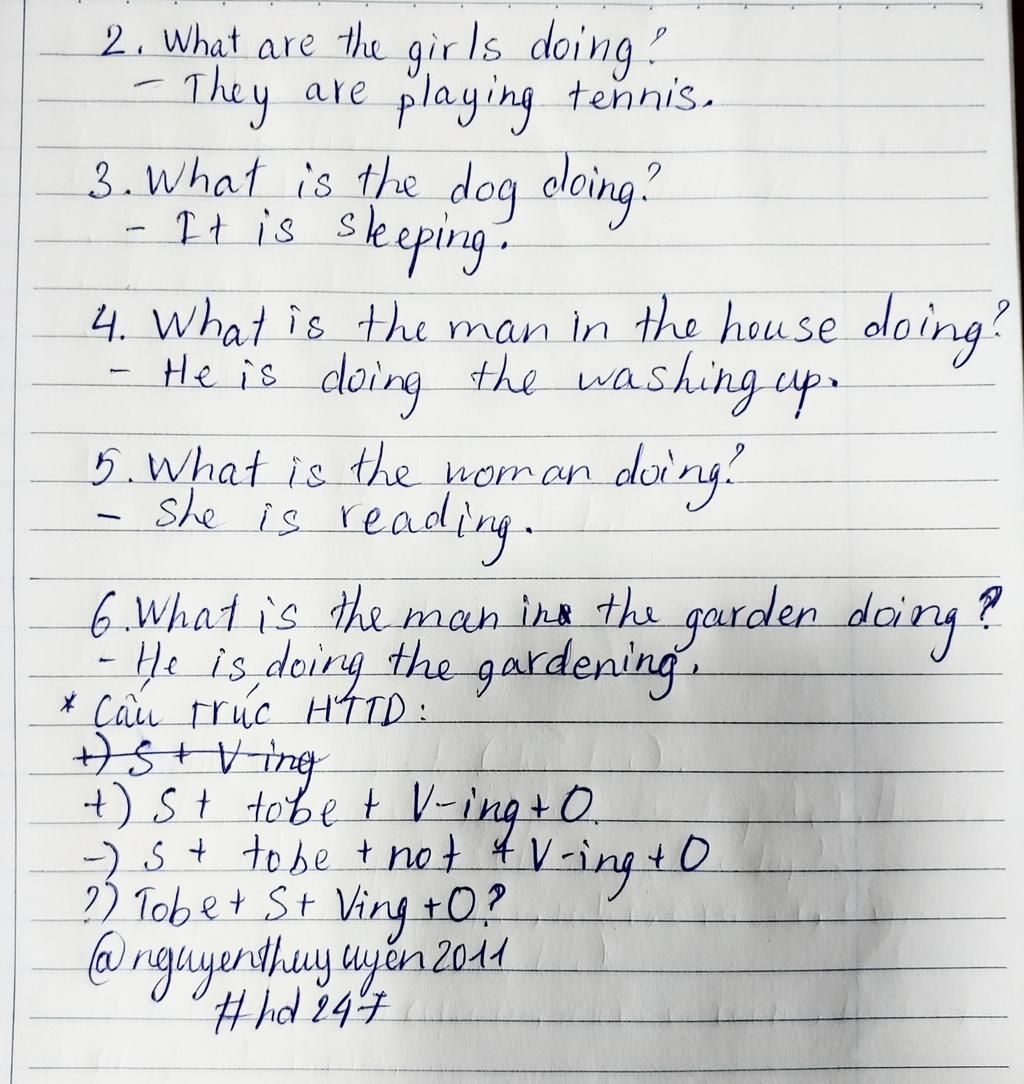 2. What are the girls doing?
- They are playing tennis.
3. What is the dog doing?
- It is sleeping.
4. What is the man in the house doing?
- He is doing the washing up.
5. What is the woman doing?
- She is reading.
6. What is the man in the garden doing?
- He is doing the gardening.
* Cấu trúc HTTD:
+) S + V-ing
+) S + tobe + V-ing + O.
-) S + tobe + not + V-ing + O
?) Tobe + S + Ving + O?
@nguyenthuyuyen2011
#hd247